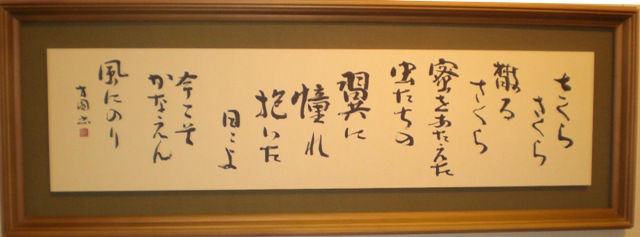 さくら
さくら
散る
さくら
蜜をあたえた
虫たちの
翼に
憧れ
抱いた
日こよ
今こそ
かなえん
風にのり